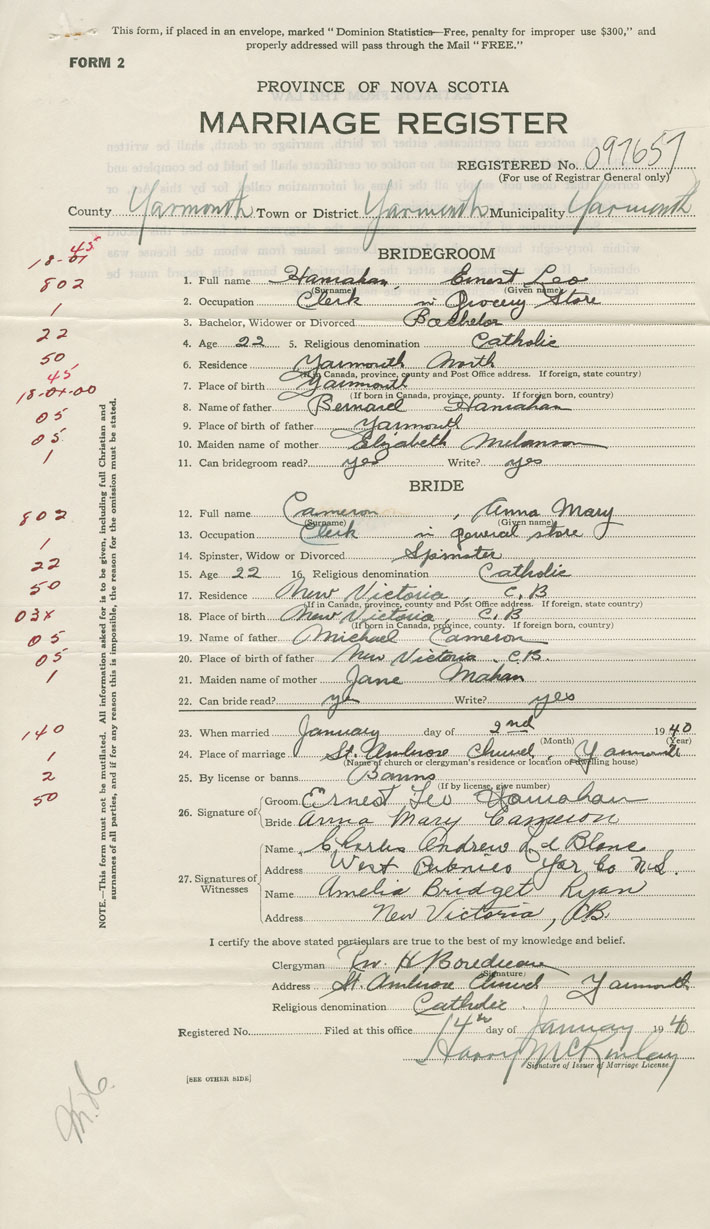 This form, if placed in an envelope, marked "Dominion Statistics—Free, penalty for improper use $300," and
properly addressed will pass through the Mail "FREE."
FORM 2
PROVINCE OF NOVA SCOTIA
MARRIAGE REGISTER
REGISTERED No. 097657
(For use of Registrar General only)
County Yarmouth Town or District Yarmouth Municipality Yarmouth
BRIDEGROOM
1. Full name Hanrahan, Ernest Leo
(Surname) (Given name)
2. Occupation Clerk in Grocery Store
3. Bachelor, Widower or Divorced Bachelor
4. Age 22 5. Religious denomination Catholic
6. Residence Yarmouth North
(If in Canada, province, county and Post Office address. If foreign, state country)
7. Place of birth Yarmouth
(If born in Canada, province, county. If foreign born, country)
8. Name of father Bernard Hanrahan
9. Place of birth of father Yarmouth
10. Maiden name of mother Elizabeth Melanson
11. Can bridegroom read? yes Write? yes
BRIDE
12. Full name Cameron, Anna Mary
(Surname) (Given name)
13. Occupation Clerk in general store
14. Spinster, Widow or Divorced Spinster
15. Age 22 16. Religious denomination Catholic
17. Residence New Victoria, C.B
(If in Canada, province, county and Post Office address. If foreign, state country)
18. Place of birth New Victoria, C.B
(If born in Canada, province, county. If foreign born, country)
19. Name of father Michael Cameron
20. Place of birth of father New Victoria. C.B.
21. Maiden name of mother Jane Mahan
22. Can bride read? ye Write? yes
23. When married January day of 2nd 1940
(Month) (Year)
24. Place of marriage St. Ambrose Church, Yarmouth
(Name of church or clergyman's residence or location of dwelling house)
25. By license or banns Banns
(If by license, give number)
26. Signature of
Groom Ernest Leo Hanrahan
Bride Anna Mary Cameron
27. Signatures of Witnesses
Name Charles Andrew Le Blanc
Address West Pubnico Yar Co N.S.
Name Amelia Bridget Ryan
Address New Victoria, C.B.
I certify the above stated particulars are true to the best of my knowledge and belief.
Clergyman Rev. H
(Signature)
Address St. Ambrose Church Yarmouth
Religious denomination Catholic
Registered No. Filed at this office 14th day of January 1940
Harry McKinlay
Signature of Issuer of Marriage License
[SEE OTHER SIDE]
NOTE.—This form must not be mutilated. All information asked for is to be given, including full Christian and
surnames of all parties, and if for any reason this is impossible, the reason for the omission must be stated.
45
18-01
802
1
22
50
45
18-01-00
05
05
1
802
1
22
50
03X
05
05
1
140
1
2
50